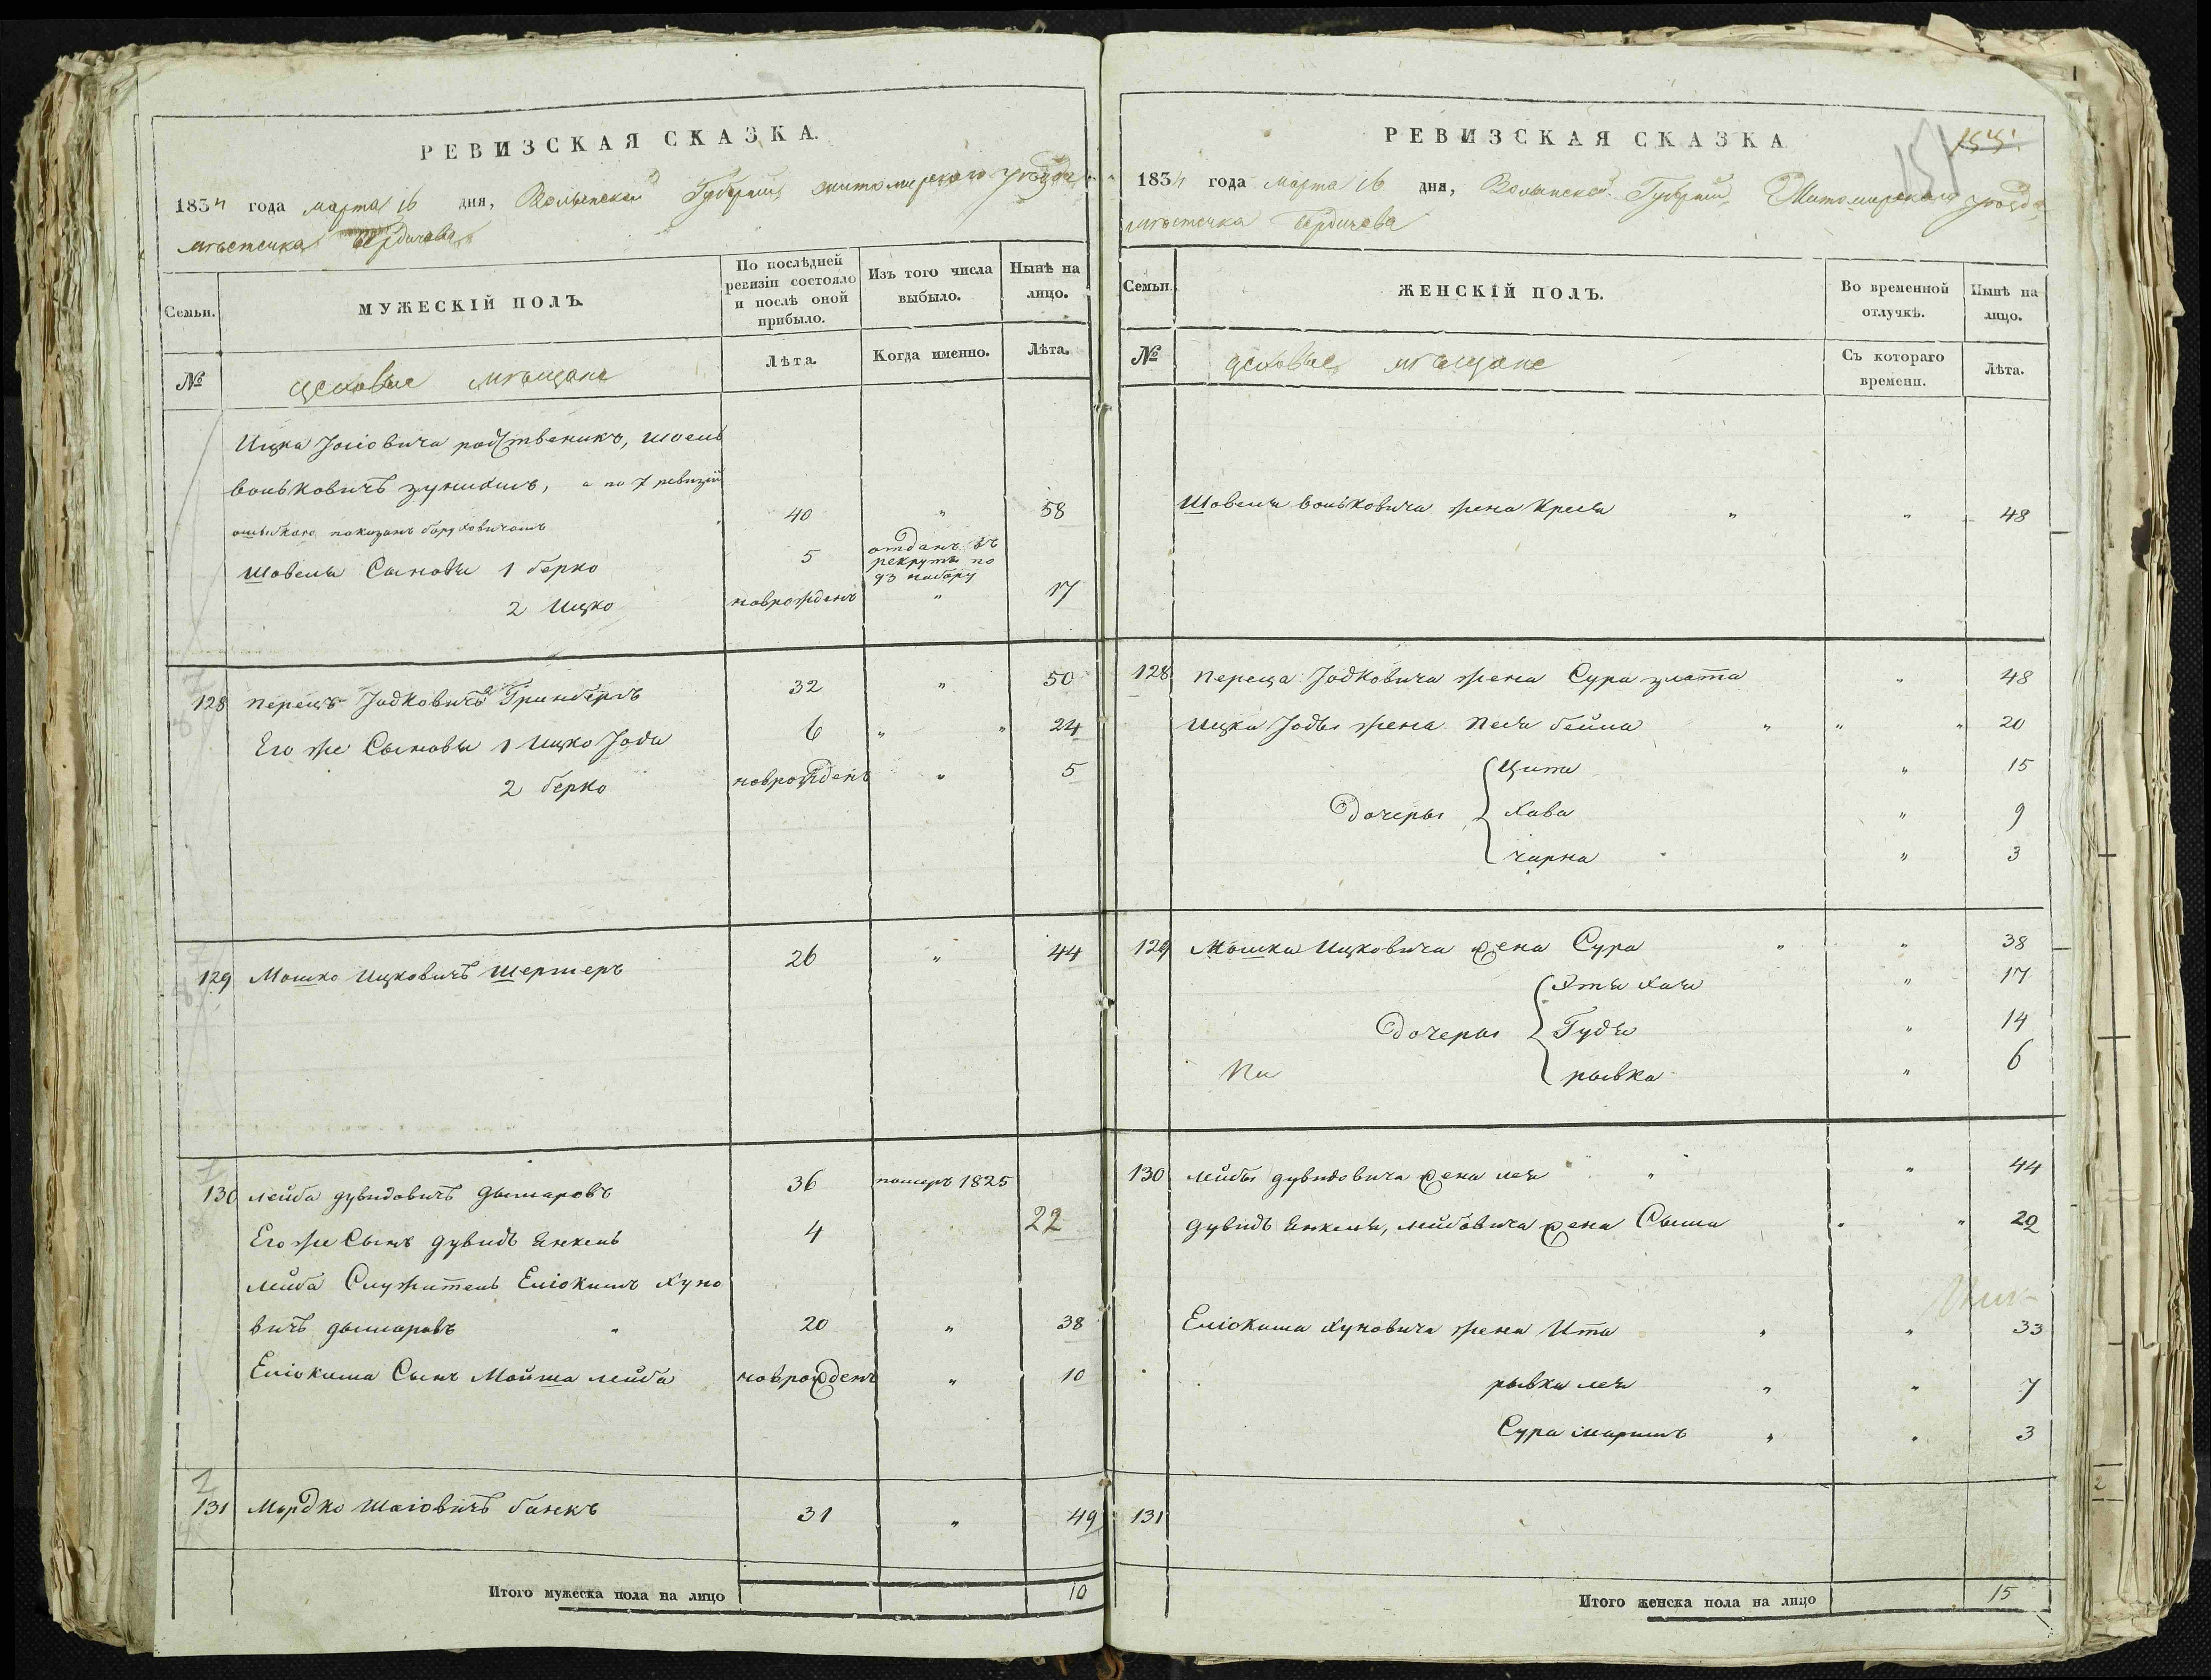 РЕВИЗСКАЯ СКАЗКА.
1834 года марта 16 дня, Волынской Губернии житомирского уѣзда
мѣстечка Бердичева
Семьи.
МУЖЕСКІЙ ПОЛЪ.
По послѣдней ревизіи состояло и послѣ оной прибыло.
Изъ того числа выбыло.
Нынѣ на лицо.
№
цеховые мѣщане
Лѣта.
Когда именно.
Лѣта.
Ицка родственикъ,
вольковичъ а по 7 ревизіи
ошыбкою показанъ борухович 40 " 58
Шовеля Сыновья 1 берко 5 отданъ въ рекруты по 93 набору
2 Ицко новрожденъ " 17
128 перецъ Іодковичъ Гринбергъ 32 " 50
Его же Сыновья 1 Ицко Іода 6 " " 24
2 берко новрожденъ " 5
129 Мошко Ицковичъ Шертеръ 26 " 44
130 лейба дувидовичъ 36 померъ 1825
Его же Сынъ дувидъ Янкель 4 22
лейба Служитель Еліокимъ Хуно
вичъ " 20 " 38
Еліокима Сынъ Мойша лейба новрожденъ " 10
131 Мордко Шаіовичъ банкъ 31 " 49
Итого мужеска пола на лицо 10
РЕВИЗСКАЯ СКАЗКА
151
1834 года марта 16 дня, Волынской Губернии Житомирского уѣзда
мѣстечка Бердичева
Семьи.
ЖЕНСКІЙ ПОЛЪ.
Во временной отлучкѣ.
Нынѣ на лицо.
№
цеховые мѣщане
Съ котораго времени.
Лѣта.
Шовеля вольковича жена Крейя " " 48
128 переца Іодковича жена Сура злота " 48
Ицка Іоды жена песя бейла " " " 20
Дочеры
" 15
Хава " 9
чарна " 3
129 Мошка Ицковича жена Сура " " 38
Хая " 17
Дочеры Гудя " 14
рывка " 6
130 лейбы дувидовича жена лея " " 44
дувидъ Янкеля, лейбовича жена Сыма " " 22
Еліокима Хуновича жена Ита " " 33
рывка лея " " 7
Сура маримъ " " 3
131
Итого женска пола на лицо 15